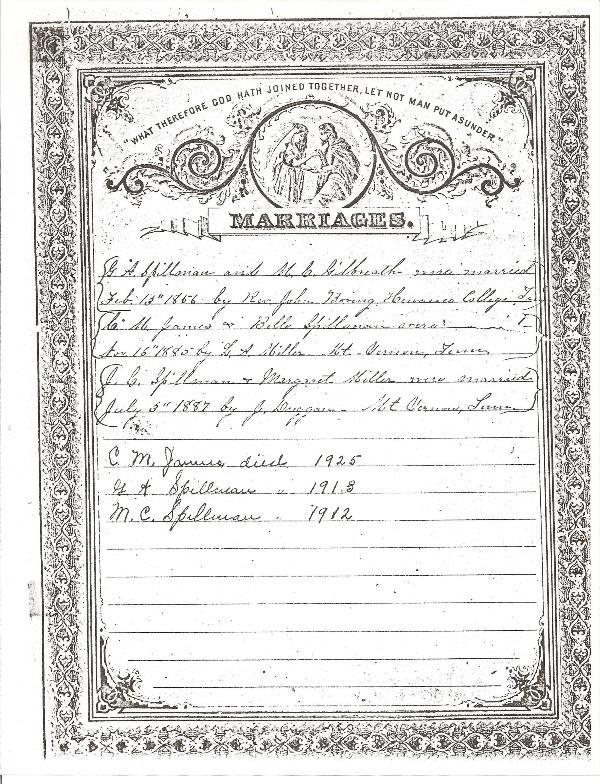 "WHAT THEREFORE GOD HATH JOINED TOGETHER, LET NOT MAN PUT ASUNDER"
MARRIAGES.
G. A. Spillman and M. C. Gilbreath were married
Feb. 13th 1866 by Rev. John Boring, Hiwassee College, Ten
C. M. James & Belle Spillman were " "
Nov. 15th 1885 by L. A. Miller Mt. Vernon, Tenn
J. C. Spillman & Margret Miller were married
July 5th 1887 by J. Duggan - Mt Vernon, Tenn
C. M. James died 1925
G A Spillman " 1913
M. C. Spillman " 1912